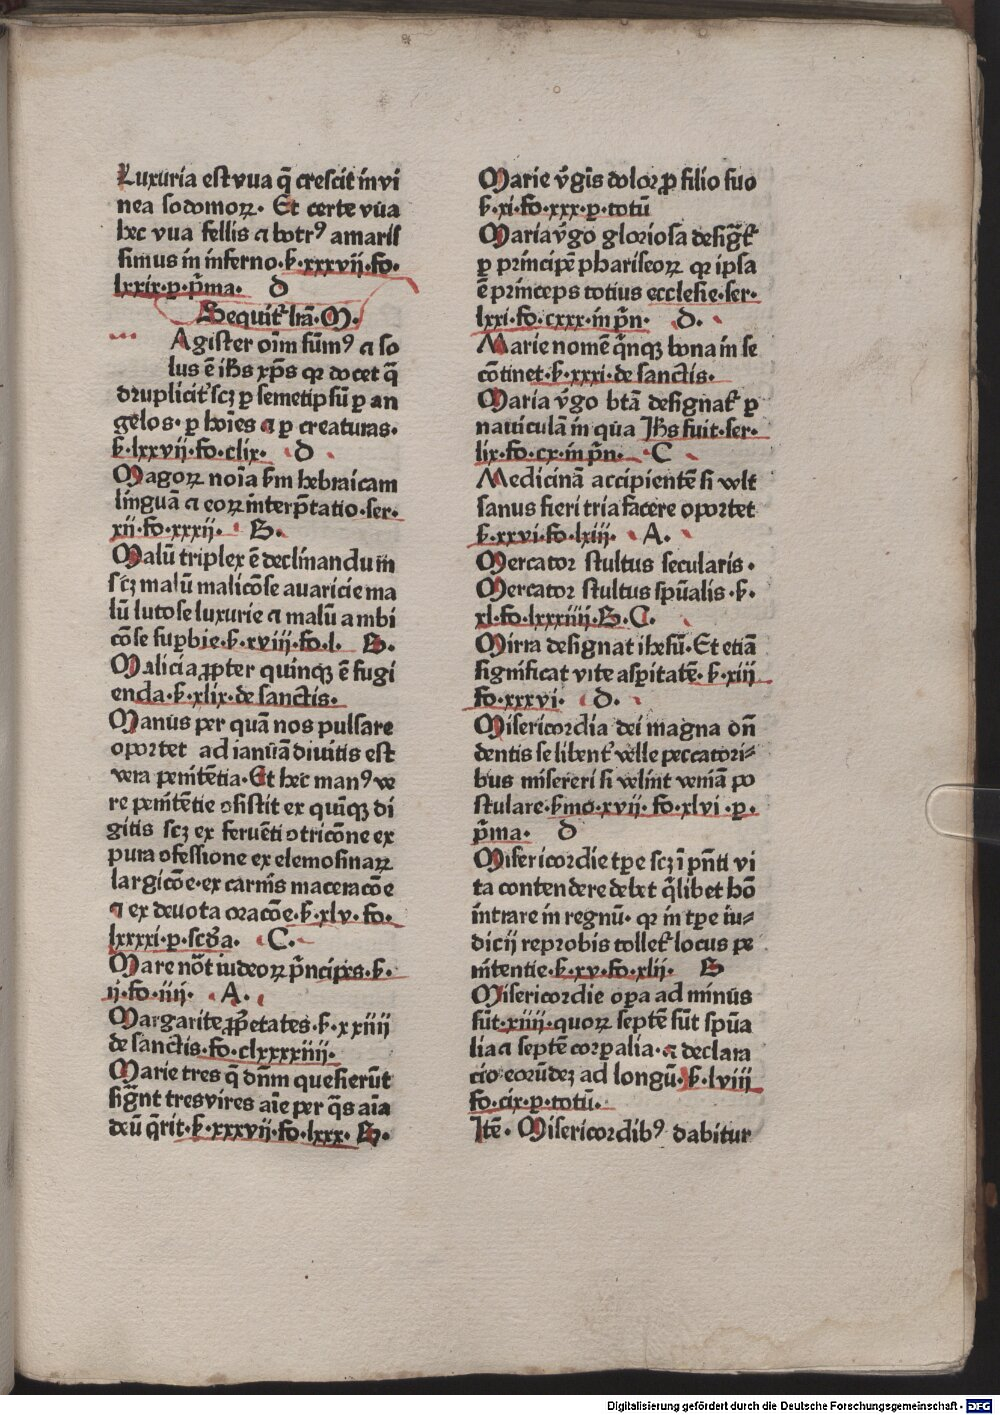 Luxuria est vua q̄ crescit in vi
nea sodomoꝝ. Et certe vūa
hec vua fellis ⁊ botrꝰ amaris
simus in inferno. ẜ. xxxvij. fo.
lxxix. p. p̄ma. D
Sequit᷑ lr̄a. M.
Agister oīm sūmꝰ ⁊ so
lus ē ih̄s xp̄s qꝛ docet q̄
druplicit᷑ scꝫ ꝑ semetipsū ꝑ an
gelos. ꝑ hoīes ⁊ ꝑ creaturas.
ẜ. lxxvij. fo. clix. D
Magoꝝ noīa ẜm hebraicam
linguā ⁊ eoꝝ interp̄tatio. ser.
xij. fo. xxxij. B.
Malū triplex ē declinandum
scꝫ malū malicōse auaricie ma
lū lutose luxurie ⁊ malū ambi
cōse suꝑbie. ẜ. xviij. fo. l. B.
Malicia ꝓpter quinqꝫ ē fugi
enda. ẜ. xlix. de sanctis.
Manus per quā nos pulsare
oportet ad ianuā diuitis est
vera penitētia. Et hec manꝰ ve
re penitētie ꝯsistit ex quinqꝫ di
gitis scꝫ ex feruēti ꝯtricōne ex
pura ꝯfessione ex elemosinaꝝ
largicōe. ex carnis maceracōe
⁊ ex deuota oracōe. ẜ. xlv. fo.
lxxxxi. p. scd̄a. C.
Mare nōt iudeoꝝ p̄ncipes. ẜ.
ij. fo. iiij. A.
Margarite ꝓp̄etates. ẜ. xxiiij
de sanctis. fo. clxxxxiiij.
Marie tres q̄ dn̄m quesierūt
sign̄t tres vires aīe per q̄s aīa
deū q̄rit. ẜ. xxxvij. fo. lxxx. B.
Marie v̄gīs dolor ꝓ filio suo
ẜ. xi. fo. xxx. p. totū
Maria v̄go gloriosa desiḡt᷑
ꝑ principē phariseoꝝ qꝛ ipsa
ē princeps totius ecclesie. ser.
lxxi. fo. cxxx. in pn̄. D.
Marie nomē q̄nqꝫ bona in se
cōtinet. ẜ. xxxi. de sanctis.
Maria v̄go btā designat᷑ ꝑ
nauiculā in qua Ih̄s fuit. ser.
lix. fo. cx. in pn̄. C
Medicinā accipientē si vult
sanus fieri tria facere oportet
ẜ. xxvi. fo. lxiij. A.
Mercator stultus secularis.
Mercator stultus spūalis. ẜ.
xl. fo. lxxxiiij. B. C.
Mirra designat ihesū. Et etiā
significat vite asꝑitatē. ẜ. xiij
fo. xxxvi. D.
Misericordia dei magna on̄
dentis se libent᷑ velle peccatori⸗
bus misereri si velint veniā po
stulare. ẜmo. xvij. fo. xlvi. p.
p̄ma. D
Misericordie tp̄e scꝫ ī pn̄ti vi
ta contendere debet q̄libet hō
intrare in regnū. qꝛ in tp̄e iu⸗
dicij reprobis tollet᷑ locus pe
nitentie. ẜ. xv. fo. xlij. B
Misericordie oꝑa ad minus
sūt. xiiij. quoꝝ septē sūt spūa
lia ⁊ septē corꝑalia. ⁊ declara
cio eorūdeꝫ ad longū. ẜ. lviij
fo. cix. p. totū.
Itē. Misericordibꝰ dabitur
Digitalisierung gefördert durch die Deutsche Forschungsgemeinschaft - DFG